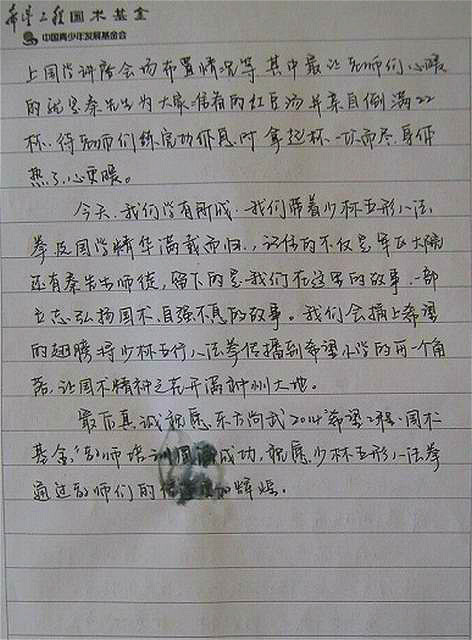 希望工程国术基金
中国青少年发展基金会
上国学讲座会场布置情况等。其中最让老师们心暖
的就是秦先生为大家准备的红豆汤并亲自倒满22
杯，待老师们练完功休息时拿起杯一饮而尽，身体
热了，心更暖。
今天，我们学有所成，我们带着少林五形八法
拳及国学精华满载而归，记住的不仅是军区大院
还有秦先生师徒，留下的是我们在这里的故事，一部
立志弘扬国术、自强不息的故事。我们会插上希望
的翅膀将少林五行八法拳传播到希望小学的每一个角
落，让国术精神之花开满神州大地。
最后真诚祝愿东方尚武2014"希望工程·国术
基金"教师培训圆满成功，祝愿少林五形八法拳
通过教师们的传 辉煌。